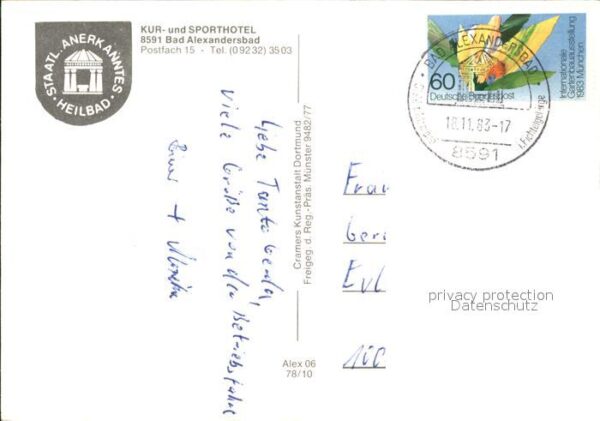 STAATL. ANERKANNTES
· HEILBAD ·
KUR- und SPORTHOTEL
8591 Bad Alexandersbad
Postfach 15 · Tel. (09232) 3503
Liebe Tante Gerda,
viele Grüße von der Betriebsfahrt
+ Monika
Cramers Kunstanstalt Dortmund
Freigeg. d. Reg.-Präs. Münster 9482/77
Alex 06
78/10
60
Deutsche Bundespost
Internationale
Gartenbauausstellung
1983 München
BAD ALEXANDERSBAD
i. Fichtelgebirge
18.11.83-17
8591
Frau
Ger
Evl
100
privacy protection
Datenschutz